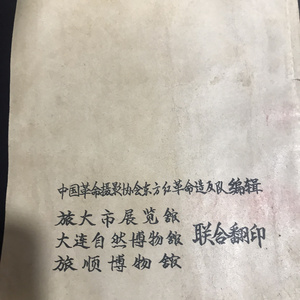 中国革命摄影协会东方红革命造反队 编辑
旅大市展览馆
大连自然博物馆 联合翻印
旅顺博物馆